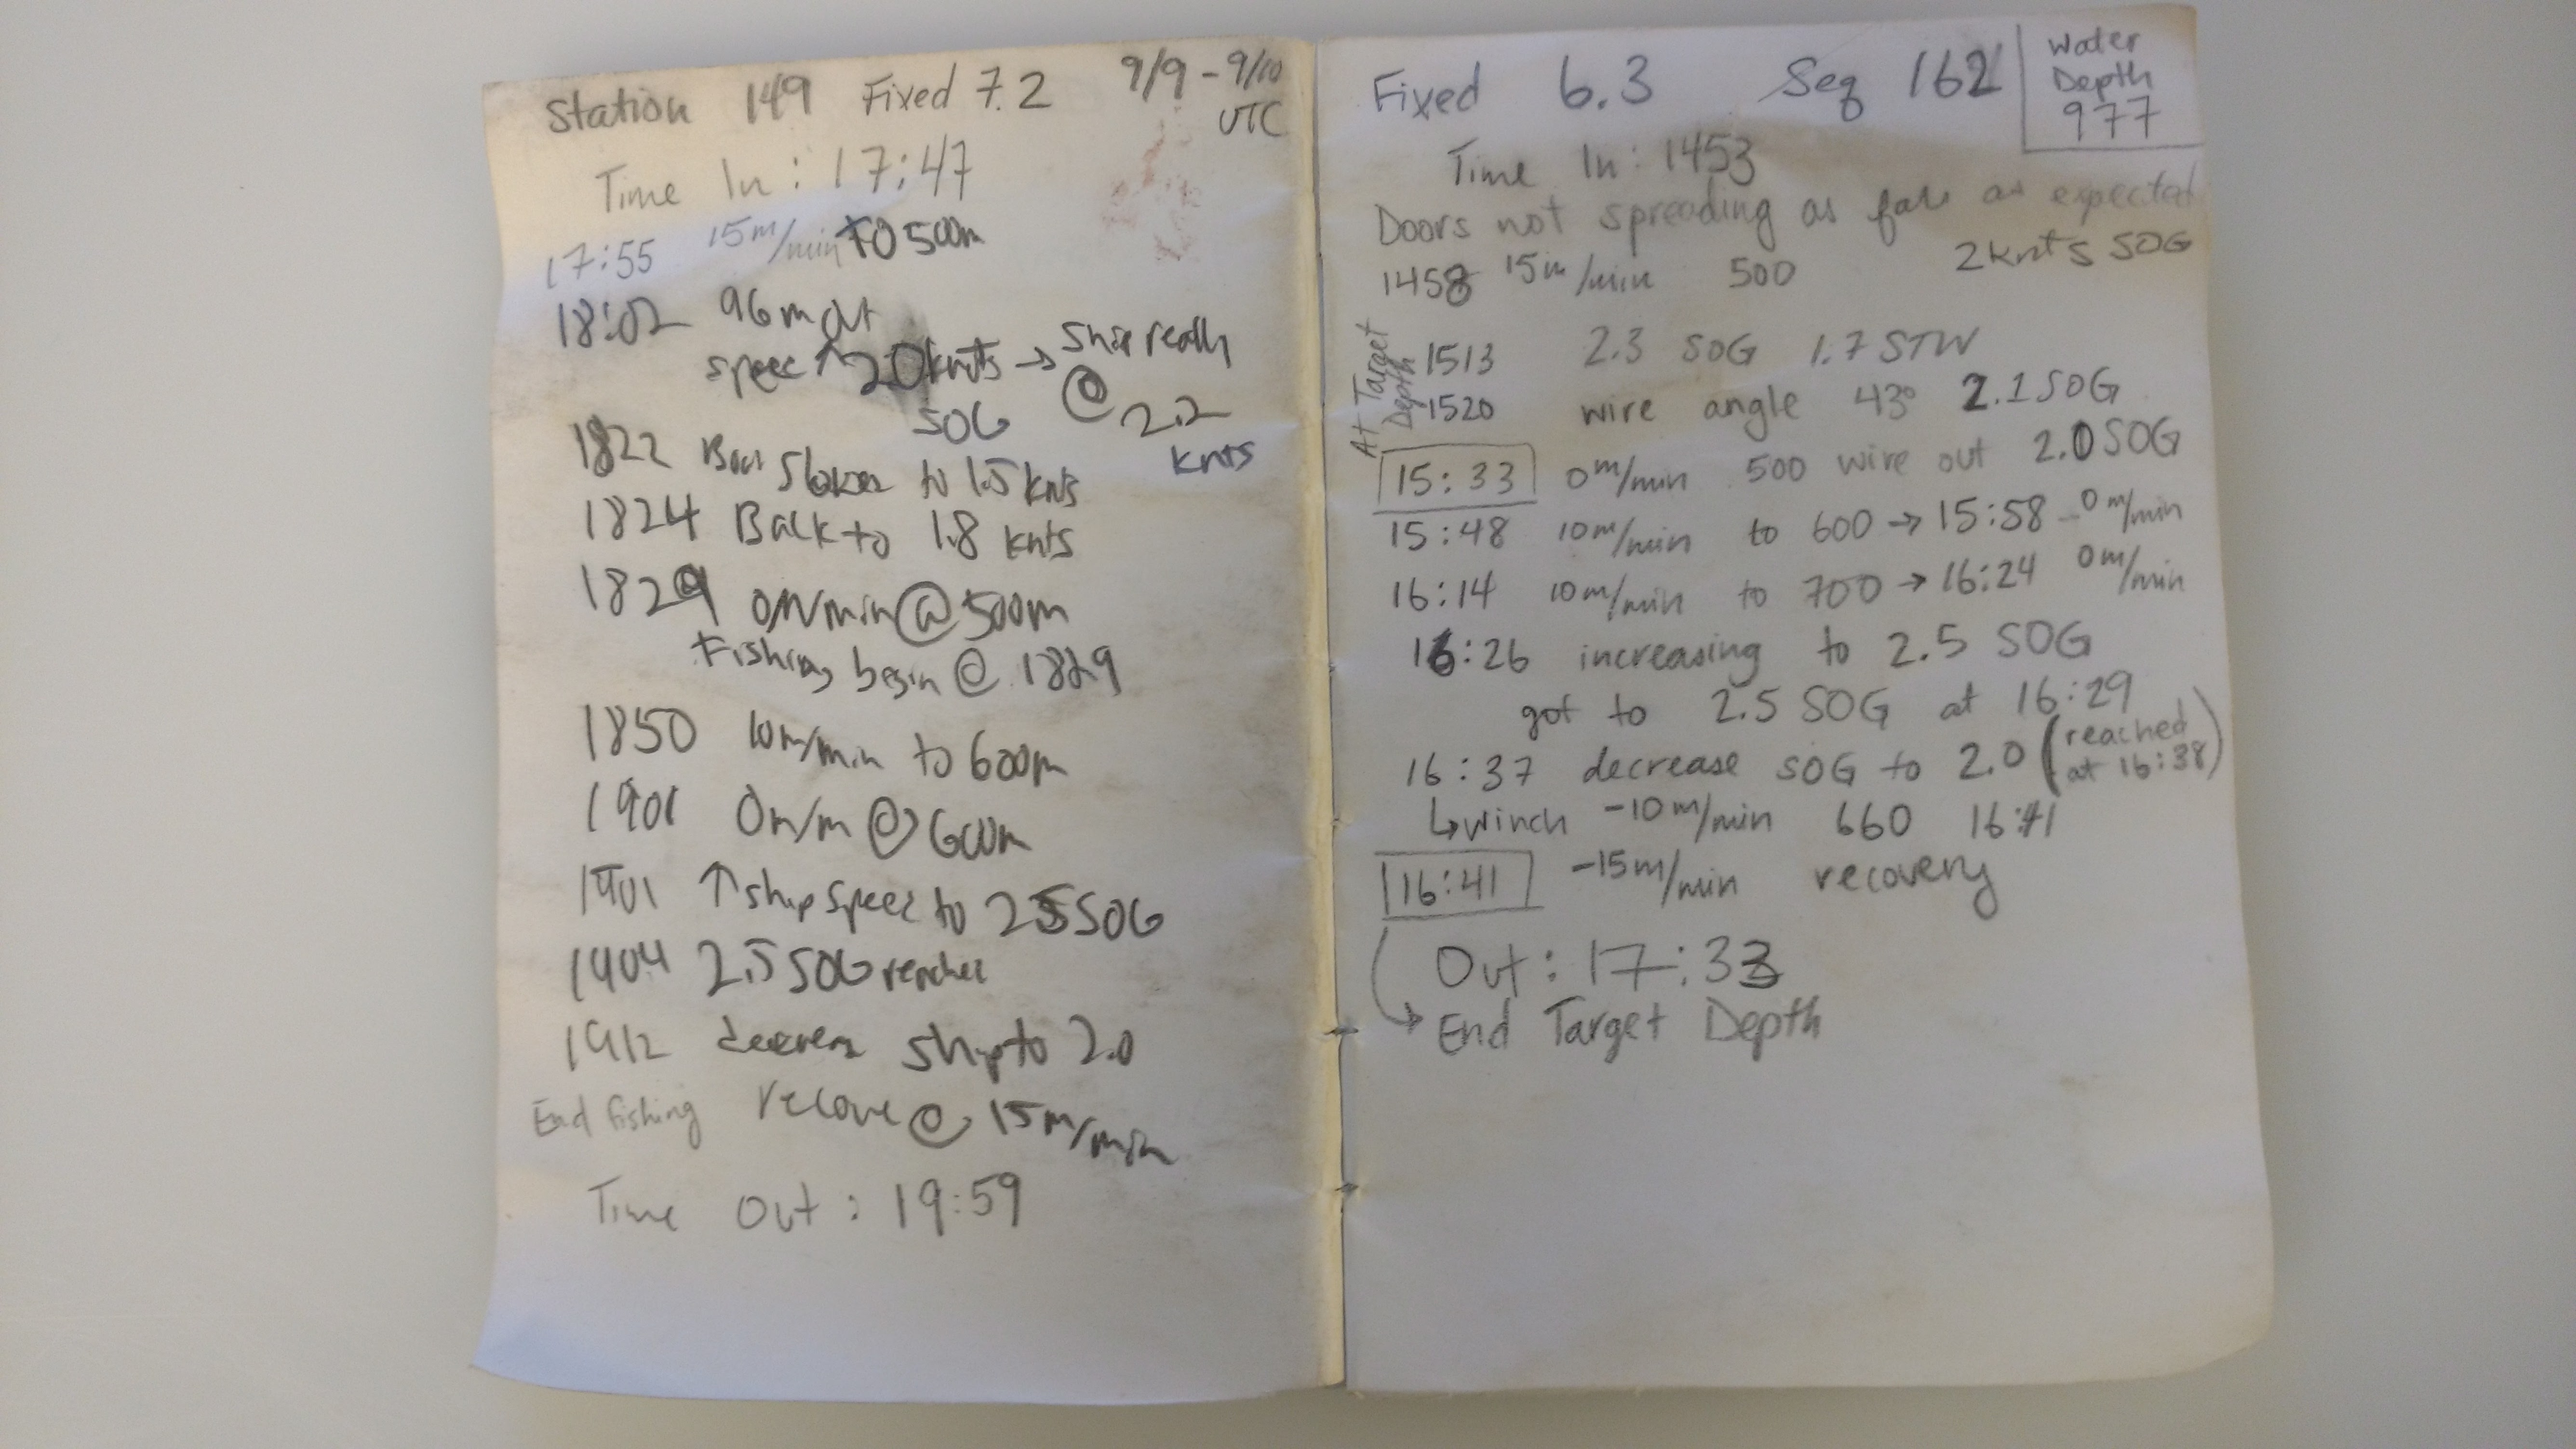 Station 149 Fixed 7.2 9/9 - 9/10 UTC
Time In: 17:47
17:55 15m/min to 500m
18:02 96m out
speed ↑ 2.0knts SOG → Ship really @ 2.2 knts
1822 slower to 1.5 knts
1824 Back to 1.8 knts
1829 0m/min @ 500m
Fishing begin @ 1829
1850 10m/min to 600m
1901 0m/m @ 600m
1901 ↑ ship speed to 2.5 SOG
1904 2.5 SOG reached
1912 ship to 2.0
End fishing @ 15m/min
Time Out: 19:59
Fixed 6.3 Seq 162
Water
Depth
977
Time In: 1453
Doors not spreading as far as expected
1458 15m/min 500 2knts SOG
At Target
Depth
1513 2.3 SOG 1.7 STW
1520 wire angle 43° 2.1 SOG
15:33 0m/min 500 wire out 2.0 SOG
15:48 10m/min to 600 → 15:58 - 0m/min
16:14 10m/min to 700 → 16:24 0m/min
16:26 increasing to 2.5 SOG
got to 2.5 SOG at 16:29
16:37 decrease SOG to 2.0 (reached at 16:38)
↳ winch -10m/min 660 16:41
16:41 -15m/min recovery
Out: 17:33
→ End Target Depth